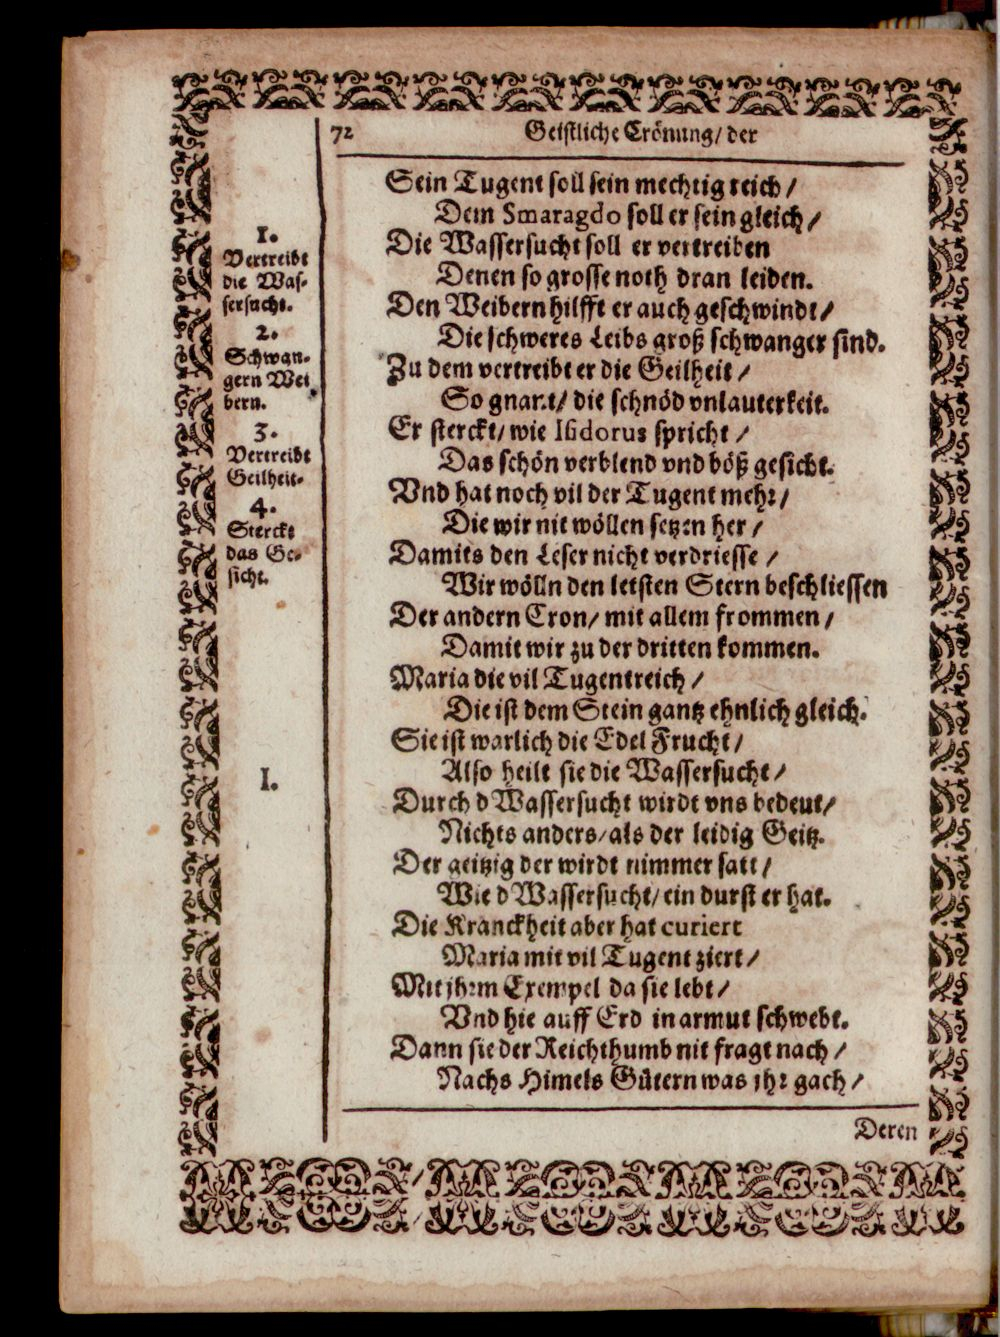 72 Geistliche Crönung/ der
Sein Tugent soll sein mechtig reich /
Dem Smaragdo soll er sein gleich /
Die Wassersucht soll er vertreiben
Denen so grosse noth dran leiden.
Den Weibern hilfft er auch geschwindt/
Die schweres Leibs groß schwanger sind.
Zu dem vertreibt er die Geilheit /
So gnant/ die schnöd vnlauterkeit.
Er sterckt/ wie Isidorus spricht /
Das schön verblend vnd böß gesicht.
Vnd hat noch vil der Tugent mehr/
Die wir nit wöllen setzen her /
Damits den Leser nicht verdriesse /
Wir wölln den letsten Stern beschliessen
Der andern Cron/ mit allem frommen /
Damit wir zu der dritten kommen.
Maria die vil Tugentreich /
Die ist dem Stein gantz ehnlich gleich.
Sie ist warlich die Edel Frucht/
Also heilt sie die Wassersucht /
Durch d Wassersucht wirdt vns bedeut/
Nichts anders/ als der leidig Geitz.
Der geitzig der wirdt nimmer satt /
Wie d Wassersucht/ ein durst er hat.
Die Kranckheit aber hat curiert
Maria mit vil Tugent ziert /
Mit jhrm Exempel da sie lebt /
Vnd hie auff Erd in armut schwebt.
Dann sie der Reichthumb nit fragt nach /
Nachs Himels Gütern was jhr gach /
Deren
1.
Vertreibt
die Was-
sersucht.
2.
Schwan-
gern Wei
bern.
3.
Vertreibt
Geilheit.
4.
Sterckt
das Ge-
sicht.
1.